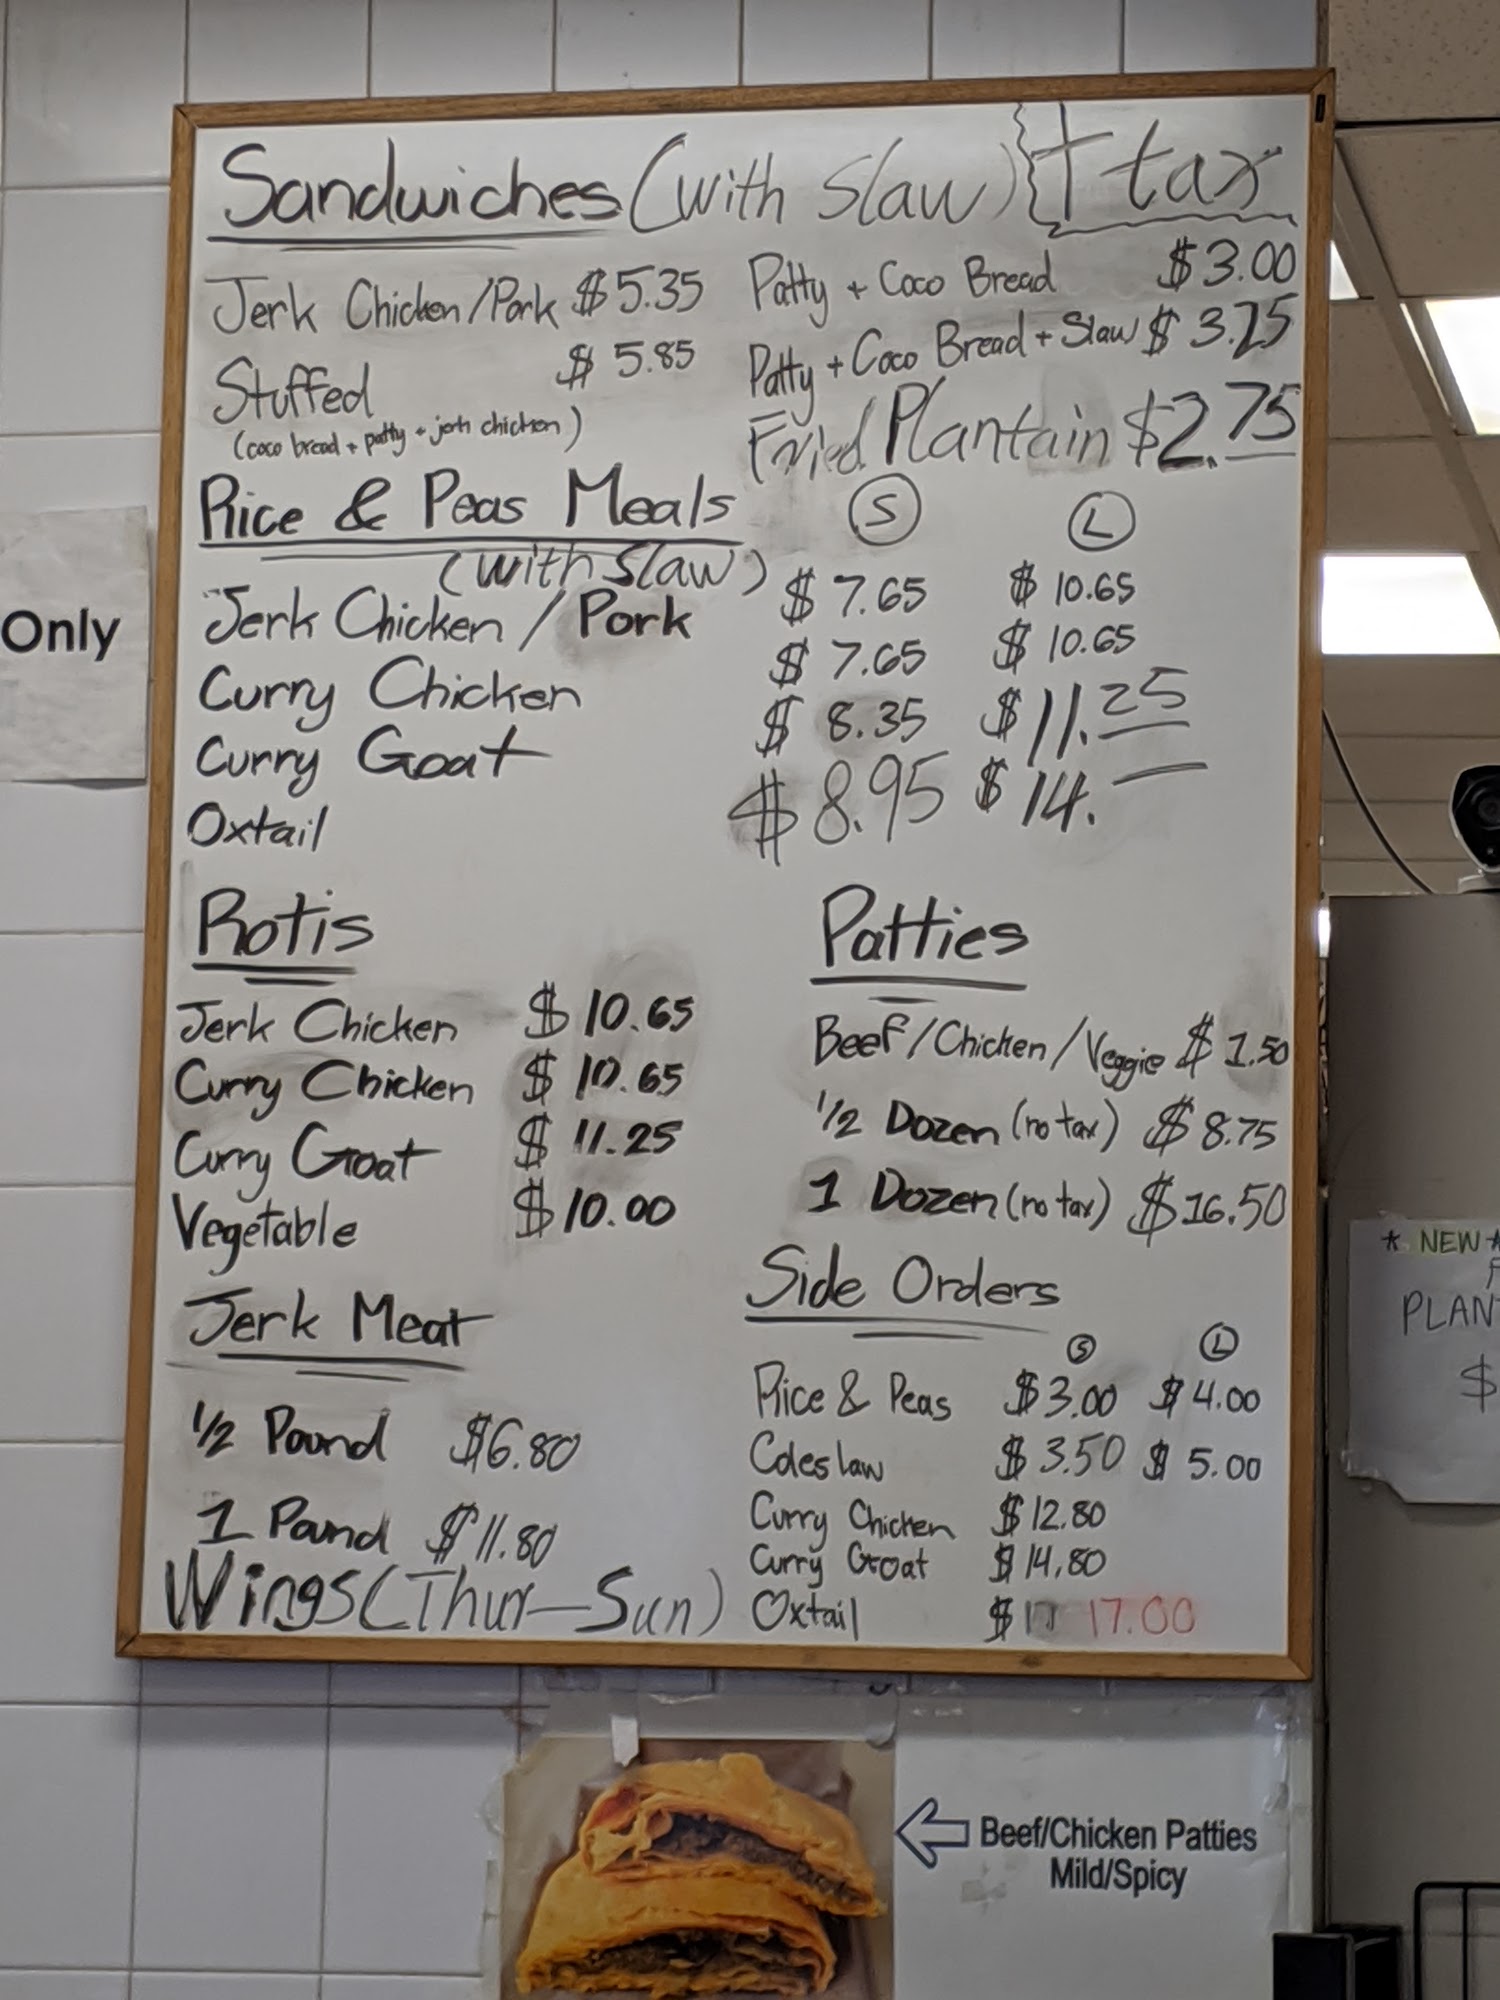 Sandwiches (with slaw) + tax
Jerk Chicken/Pork $5.35
Stuffed $5.85
(coco bread + patty + jerk chicken)
Patty + Coco Bread $3.00
Patty + Coco Bread + Slaw $3.25
Fried Plantain $2.75
Rice & Peas Meals S L
(with slaw)
Jerk Chicken / Pork $7.65 $10.65
Curry Chicken $7.65 $10.65
Curry Goat $8.35 $11.25
Oxtail $8.95 $14.—
Rotis
Jerk Chicken $10.65
Curry Chicken $10.65
Curry Goat $11.25
Vegetable $10.00
Patties
Beef/Chicken/Veggie $1.50
1/2 Dozen (no tax) $8.75
1 Dozen (no tax) $16.50
Jerk Meat
1/2 Pound $6.80
1 Pound $11.80
Wings (Thur—Sun)
Side Orders
S L
Rice & Peas $3.00 $4.00
Coleslaw $3.50 $5.00
Curry Chicken $12.80
Curry Goat $14.80
Oxtail $17.00
Only
* NEW *
PLAN
$
Beef/Chicken Patties
Mild/Spicy